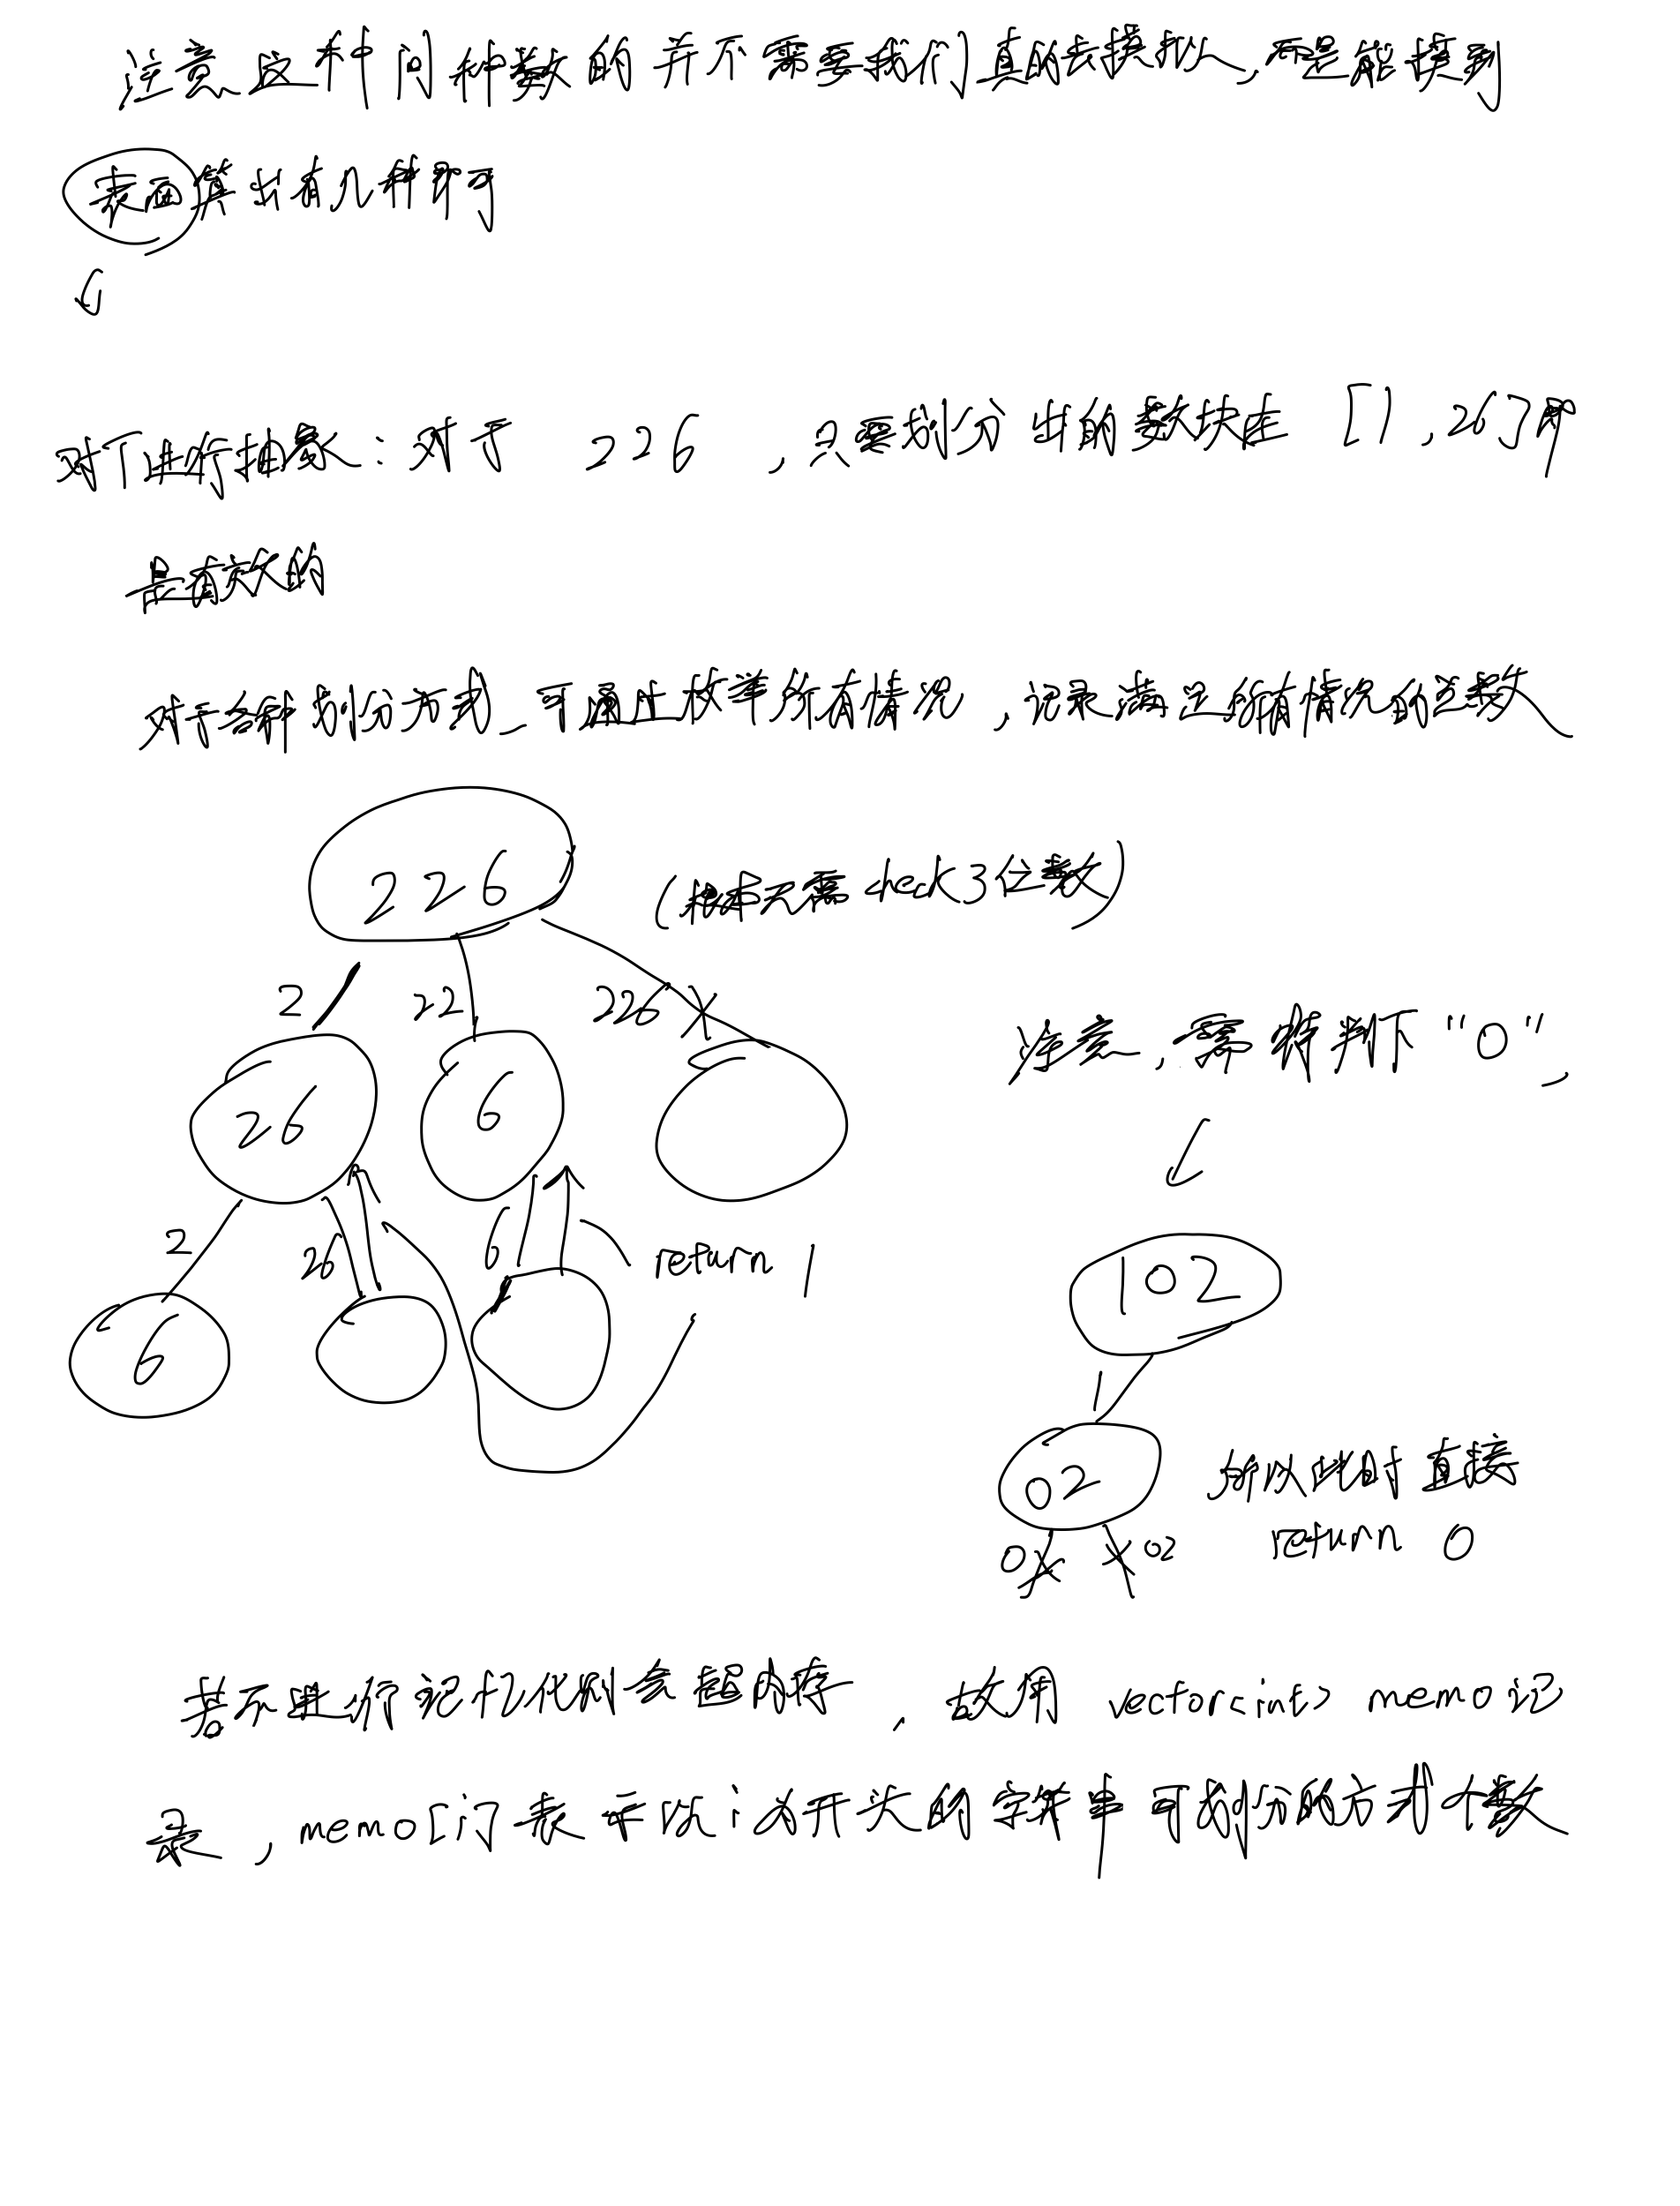 注意这种问种数的并不需要我们真的去模拟,而是能摸到
表面算出有几种即可
对下进行抽象:对于 226 ,只要划分出的数块在 [1,26]即
是有效的
对于各种划分方式,可通过枚举所有情况,记录满足所有情况的总数
226
(根本无需check3位数)
2 22 226
注意,需特判下"0",
26 6
2 26 6 return 1
102
6
1
02 所以此时直接
0 02 return 0
若不进行记忆化则会超内存,故用 vector<int> memo记
录,memo[i]表示以i为开头的字符串可划分的方式个数